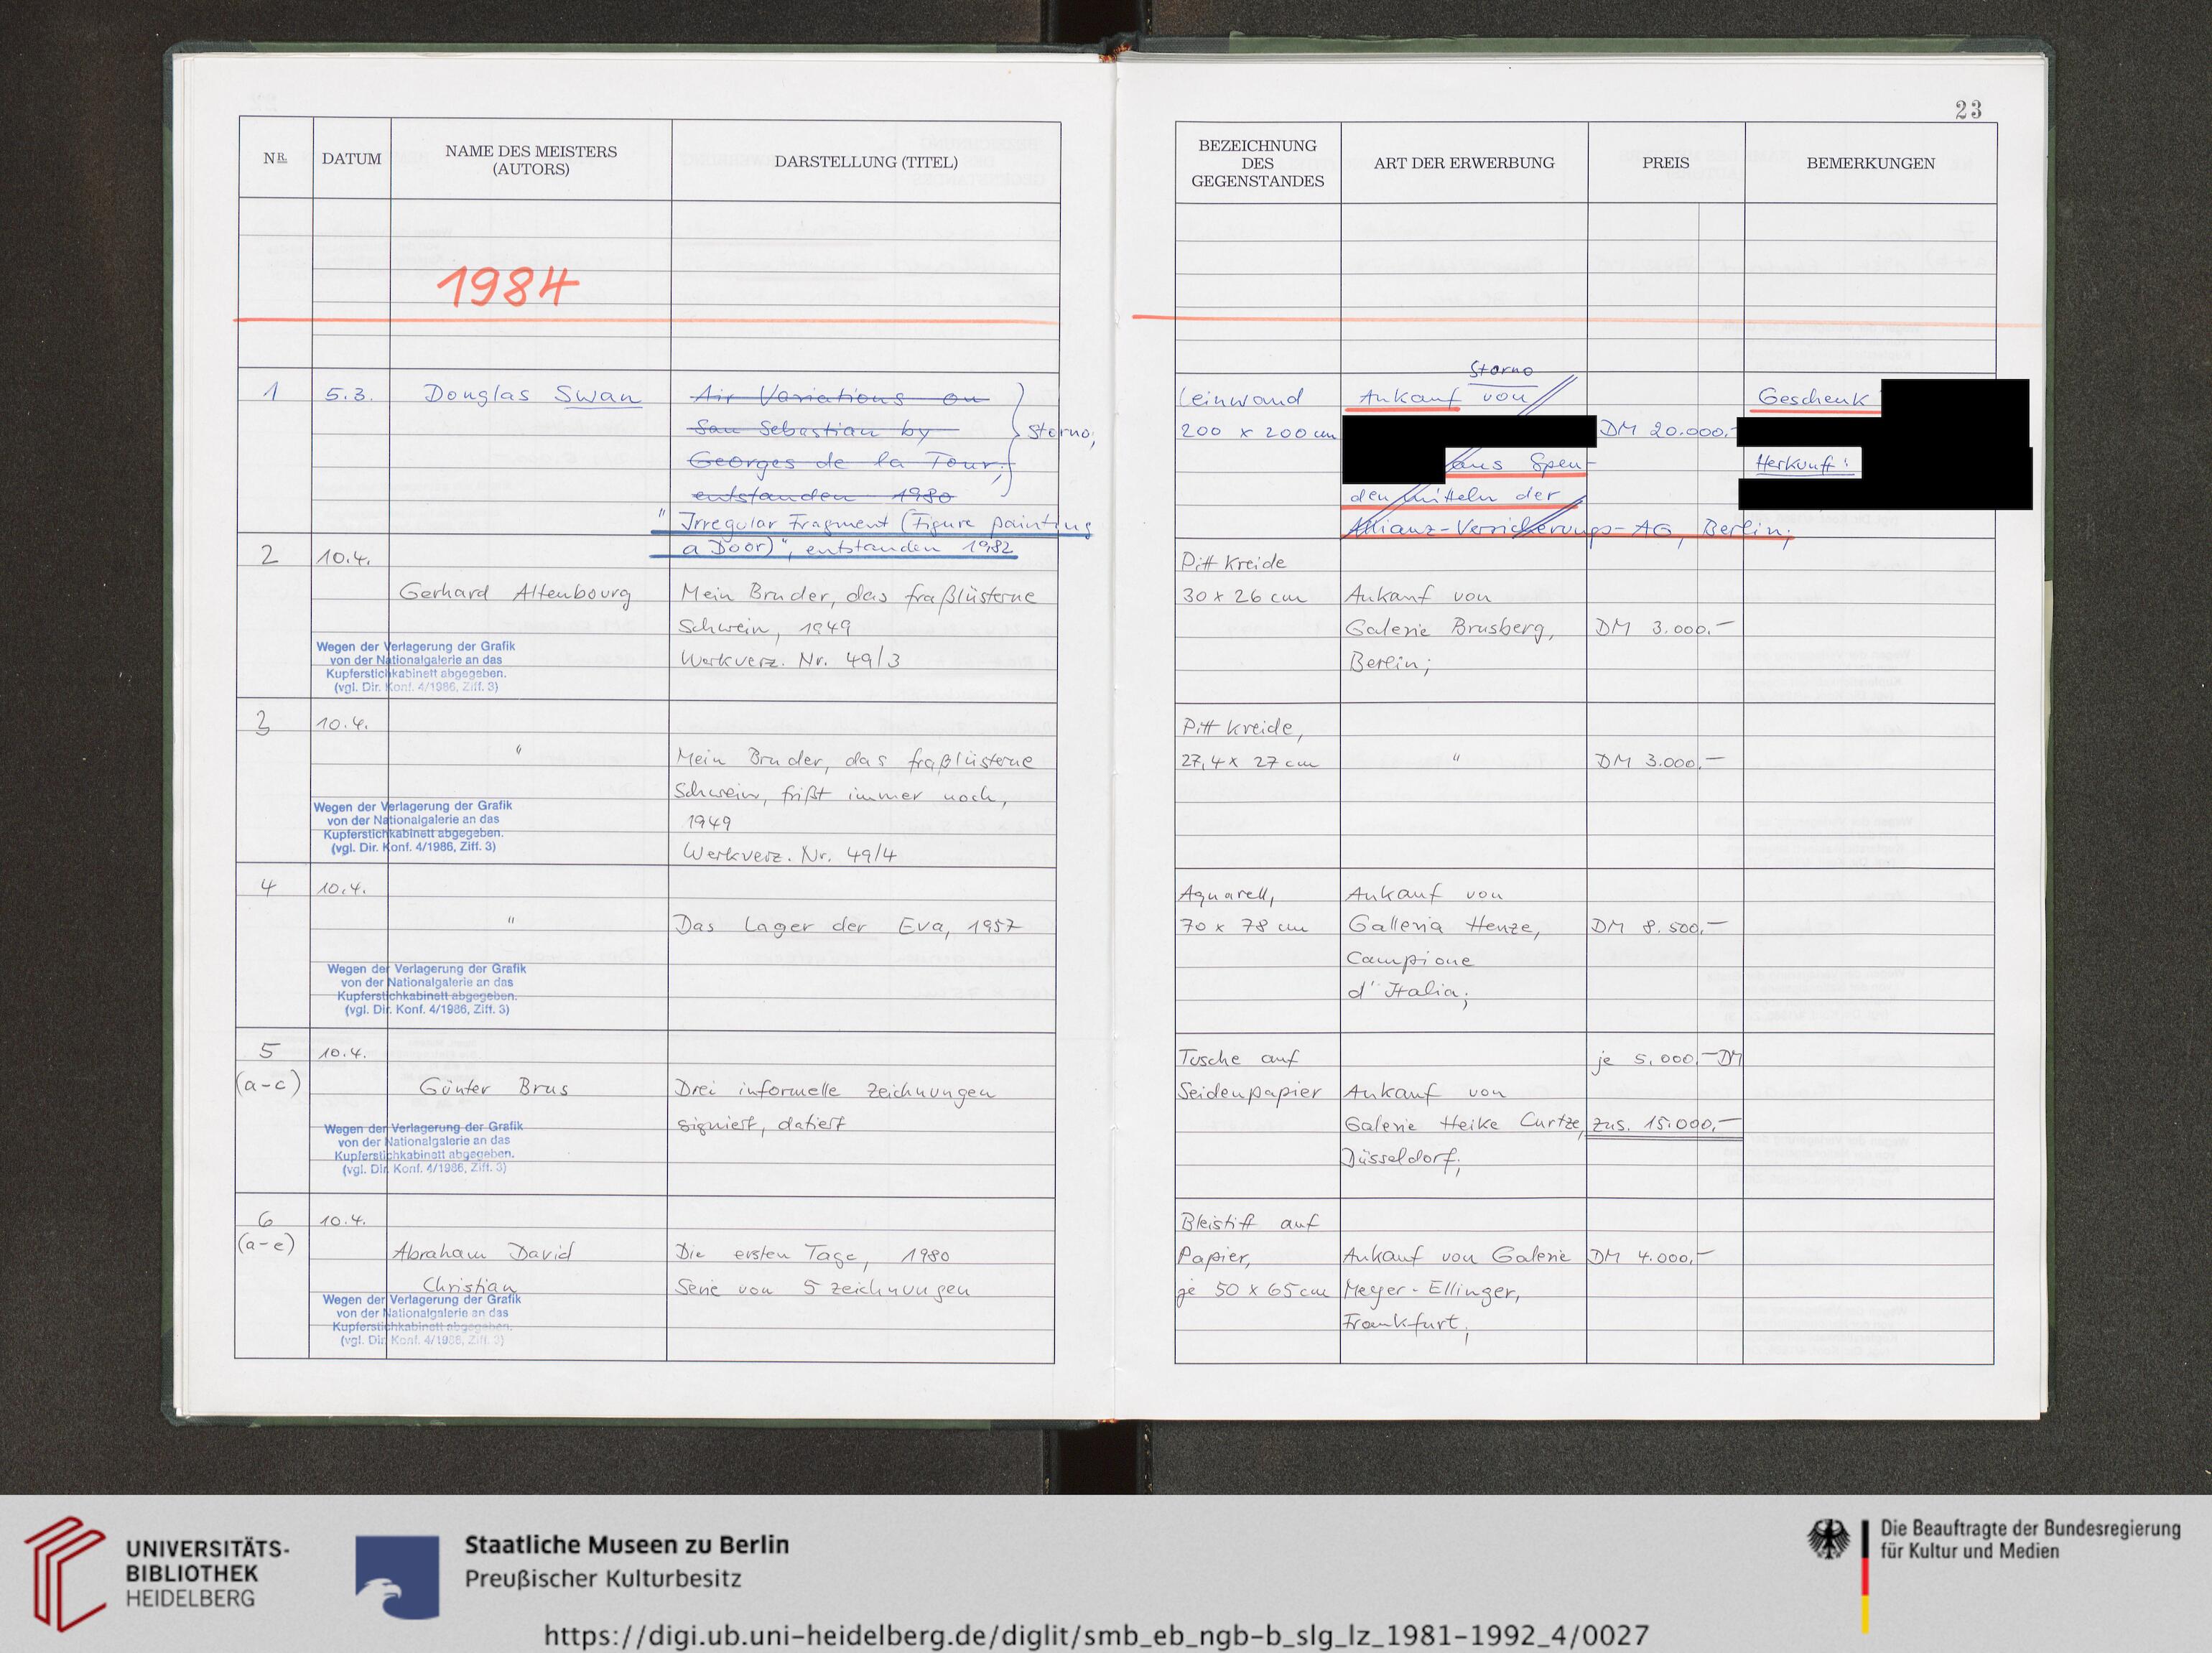 23
NR.
DATUM
NAME DES MEISTERS
(AUTORS)
DARSTELLUNG (TITEL)
BEZEICHNUNG
DES
GEGENSTANDES
ART DER ERWERBUNG
PREIS
BEMERKUNGEN
1984
1
5.3.
Douglas Swan
Air Variations on
San Sebastian by
Georges de la Tour;
entstanden 1980
Storno;
"Irregular Fragment (Figure painting
a Door)", entstanden 1982
Leinwand
200 x 200 cm
Storno
Ankauf von
aus Spen-
denmitteln der
Allianz-Versicherungs-AG, Berlin;
DM 20.000,-
Geschenk
Herkunft:
2
10.4.
Gerhard Altenbourg
Mein Bruder, das fraßlüsterne
Schwein, 1949
Werkverz. Nr. 49/3
Wegen der Verlagerung der Grafik
von der Nationalgalerie an das
Kupferstichkabinett abgegeben.
(vgl. Dir. Konf. 4/1986, Ziff. 3)
Pitt Kreide
30 x 26 cm
Ankauf von
Galerie Brusberg,
Berlin;
DM 3.000,-
3
10.4.
"
Mein Bruder, das fraßlüsterne
Schwein, frißt immer noch,
1949
Werkverz. Nr. 49/4
Wegen der Verlagerung der Grafik
von der Nationalgalerie an das
Kupferstichkabinett abgegeben.
(vgl. Dir. Konf. 4/1986, Ziff. 3)
Pitt Kreide,
27,4 x 27 cm
"
DM 3.000,-
4
10.4.
"
Das Lager der Eva, 1957
Wegen der Verlagerung der Grafik
von der Nationalgalerie an das
Kupferstichkabinett abgegeben.
(vgl. Dir. Konf. 4/1986, Ziff. 3)
Aquarell,
70 x 78 cm
Ankauf von
Galleria Henze,
Campione
d'Italia;
DM 8.500,-
5
(a-c)
10.4.
Günter Brus
Drei informelle Zeichnungen
signiert, datiert
Wegen der Verlagerung der Grafik
von der Nationalgalerie an das
Kupferstichkabinett abgegeben.
(vgl. Dir. Konf. 4/1986, Ziff. 3)
Tusche auf
Seidenpapier
Ankauf von
Galerie Heike Curtze,
Düsseldorf;
je 5.000,- DM
zus. 15.000,-
6
(a-e)
10.4.
Abraham David
Christian
Die ersten Tage, 1980
Serie von 5 Zeichnungen
Wegen der Verlagerung der Grafik
von der Nationalgalerie an das
Kupferstichkabinett abgegeben.
(vgl. Dir. Konf. 4/1986, Ziff. 3)
Bleistift auf
Papier,
je 50 x 65 cm
Ankauf von Galerie
Meyer-Ellinger,
Frankfurt;
DM 4.000,-
UNIVERSITÄTS-
BIBLIOTHEK
HEIDELBERG
Staatliche Museen zu Berlin
Preußischer Kulturbesitz
Die Beauftragte der Bundesregierung
für Kultur und Medien
https://digi.ub.uni-heidelberg.de/diglit/smb_eb_ngb-b_slg_lz_1981-1992_4/0027